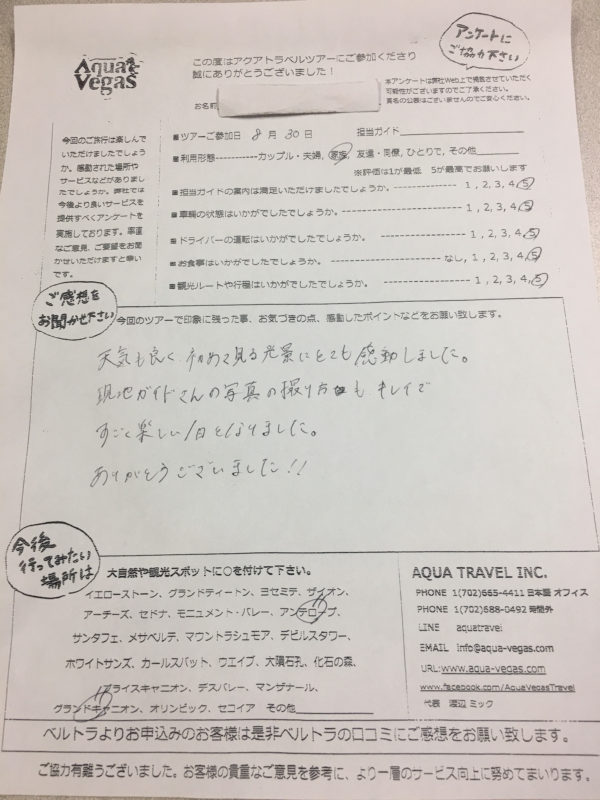 Aqua Vegas
この度はアクアトラベルツアーにご参加くださり
誠にありがとうございました！
アンケートに
ご協力下さい
本アンケートは弊社Web上で掲載させていただく
可能性がございますのでご了承ください。
実名の公表はございませんのでご安心ください。
お名前
今回のご旅行は楽しんで
いただけましたでしょう
か。感動された場所や
サービスなどがありまし
たでしょうか。弊社では
今後より良いサービスを
提供すべくアンケートを
実施しております。率直
なご意見、ご要望をお聞
かせいただけますと幸い
です。
■ツアーご参加日 8月30日 担当ガイド
■利用形態-----------カップル・夫婦, 家族, 友達・同僚, ひとりで, その他
※評価は1が最低 5が最高でお願いします
■担当ガイドの案内は満足いただけましたでしょうか。---------------- 1, 2, 3, 4, 5
■車輌の状態はいかがでしたでしょうか。---------------- 1, 2, 3, 4, 5
■ドライバーの運転はいかがでしたでしょうか。---------------- 1, 2, 3, 4, 5
■お食事はいかがでしたでしょうか。---------------- なし, 1, 2, 3, 4, 5
■観光ルートや行程はいかがでしたでしょうか。---------------- 1, 2, 3, 4, 5
ご感想を
お聞かせ下さい
今回のツアーで印象に残った事、お気づきの点、感動したポイントなどをお願い致します。
天気も良く、初めて見る光景にとても感動しました。
現地ガイドさんの写真の撮り方もキレイで
すごく楽しい1日となりました。
ありがとうございました!!
今後
行ってみたい
場所は
大自然や観光スポットに○を付けて下さい。
イエローストーン、グランドティートン、ヨセミテ、ザイオン、
アーチーズ、セドナ、モニュメント・バレー、アンテロープ、
サンタフェ、メサベルデ、マウントラシュモア、デビルスタワー、
ホワイトサンズ、カールスバット、ウエイブ、大隕石孔、化石の森、
ブライスキャニオン、デスバレー、マンザナール、
グランドキャニオン、オリンピック、セコイア その他
AQUA TRAVEL INC.
PHONE 1(702)665-4411 日本語 オフィス
PHONE 1(702)688-0492 時間外
LINE aquatravel
EMAIL info@aqua-vegas.com
URL:www.aqua-vegas.com
www.facebook.com/AquaVegasTravel
代表 渡辺 ミック
ベルトラよりお申込みのお客様は是非ベルトラの口コミにご感想をお願い致します。
ご協力有難うございました。お客様の貴重なご意見を参考に、より一層のサービス向上に努めてまいります。